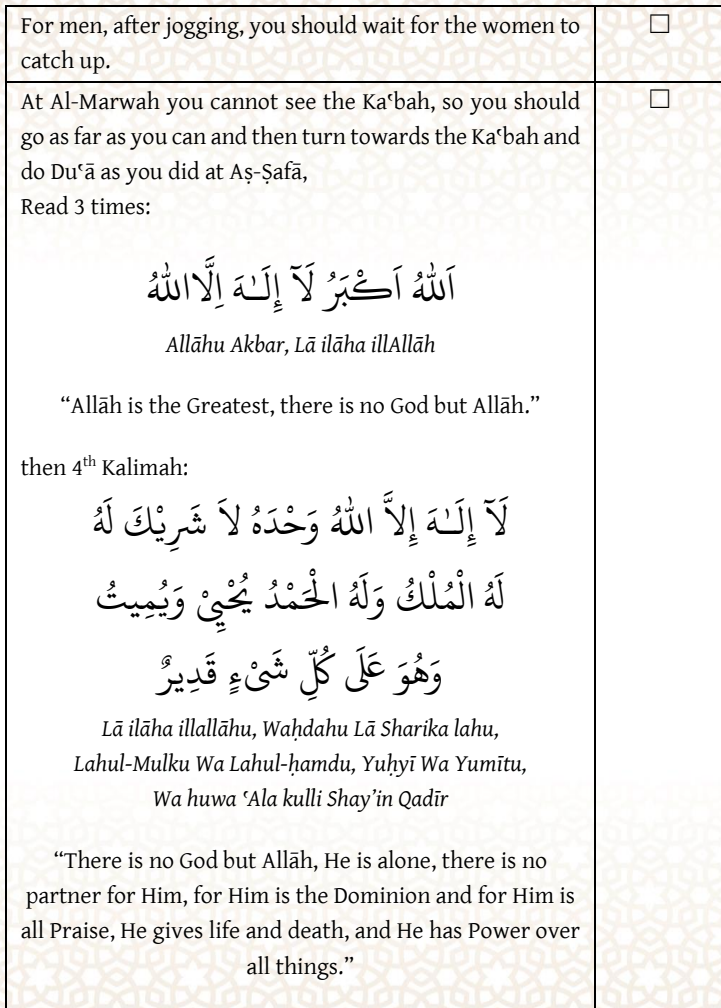 For men, after jogging, you should wait for the women to ☐
catch up.
At Al-Marwah you cannot see the Kaʿbah, so you should ☐
go as far as you can and then turn towards the Kaʿbah and
do Duʿā as you did at Aṣ-Ṣafā,
Read 3 times:
اَللّٰهُ اَكْبَرُ لَآ إِلَـٰهَ اِلَّااللّٰهُ
Allāhu Akbar, Lā ilāha illAllāh
“Allāh is the Greatest, there is no God but Allāh.”
then 4th Kalimah:
لَآ إِلَـٰهَ إِلاَّ اللّٰهُ وَحْدَهُ لاَ شَرِيْكَ لَهُ
لَهُ الْمُلْكُ وَلَهُ الْحَمْدُ يُحْيِيْ وَيُمِيتُ
وَهُوَ عَلَى كُلِّ شَىْءٍ قَدِيرٌ
Lā ilāha illallāhu, Waḥdahu Lā Sharika lahu,
Lahul-Mulku Wa Lahul-ḥamdu, Yuḥyī Wa Yumītu,
Wa huwa ʿAla kulli Shay’in Qadīr
“There is no God but Allāh, He is alone, there is no
partner for Him, for Him is the Dominion and for Him is
all Praise, He gives life and death, and He has Power over
all things.”